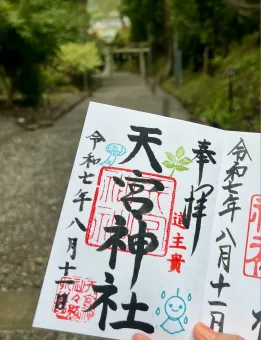 奉拝
道主貴
天宮神社
令和七年八月十一日
令和七年八月十一